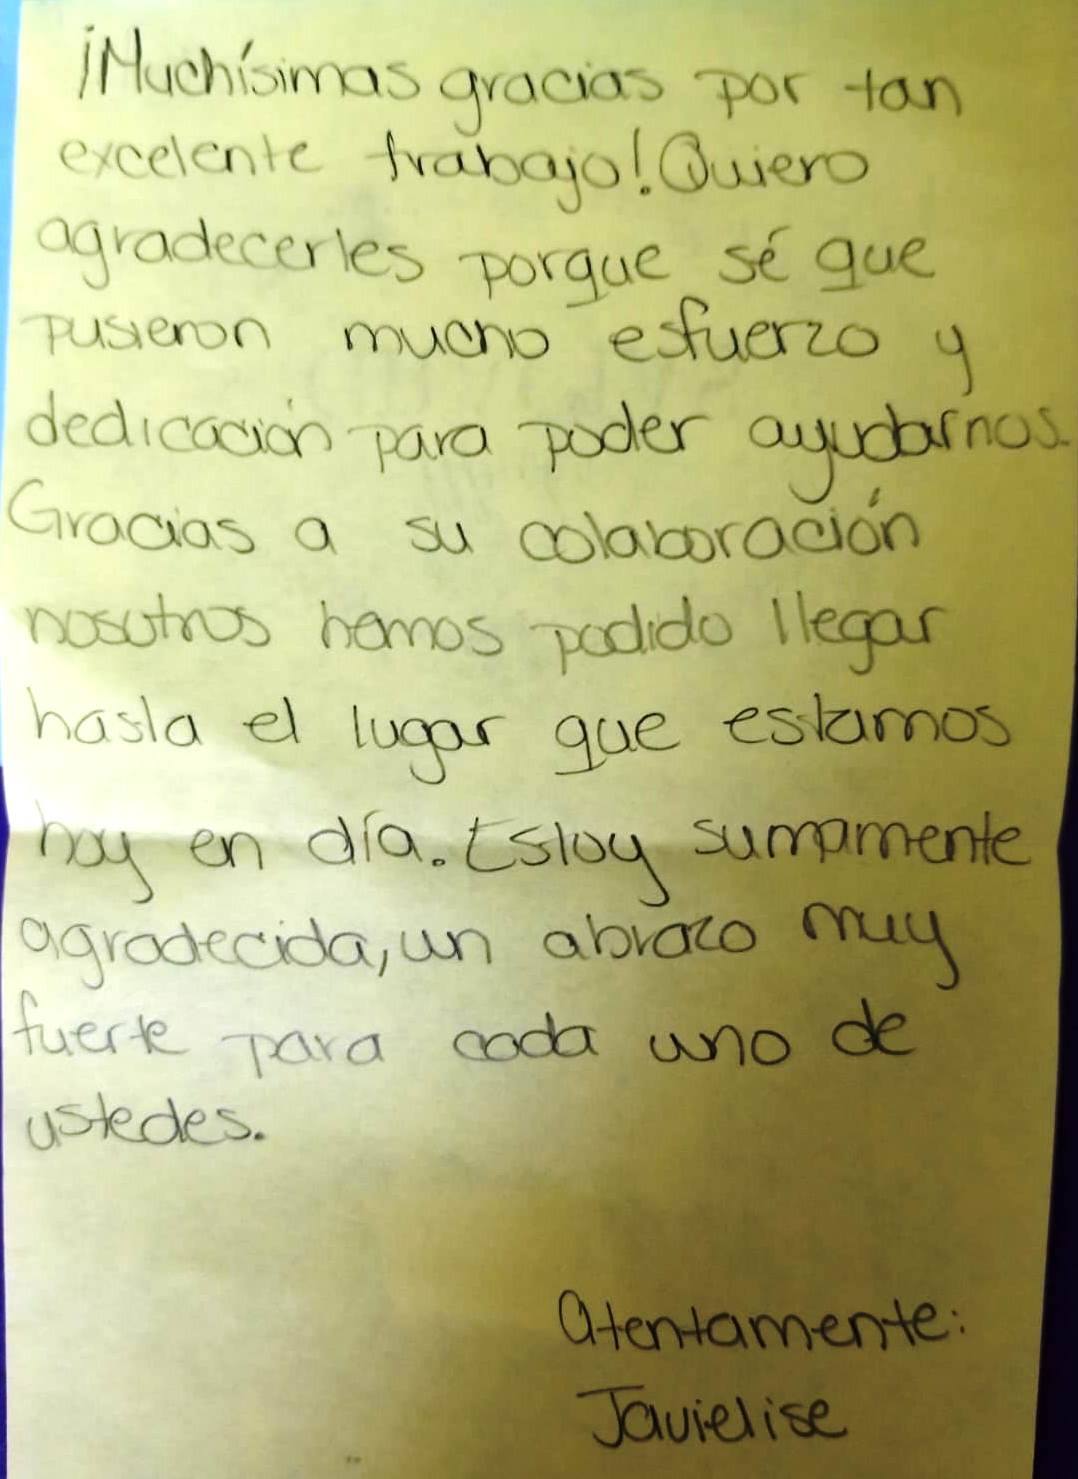 ¡Muchísimas gracias por tan
excelente trabajo! Quiero
agradecerles porque sé que
pusieron mucho esfuerzo y
dedicación para poder ayudarnos.
Gracias a su colaboración
nosotros hemos podido llegar
hasta el lugar que estamos
hoy en día. Estoy sumamente
agradecida, un abrazo muy
fuerte para cada uno de
ustedes.
Atentamente:
Javielise